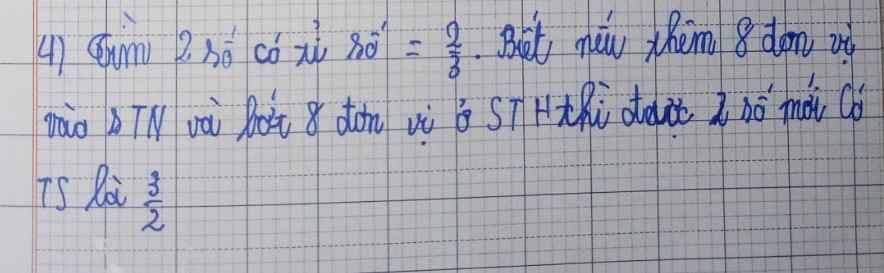 4) Tìm 2 số có tỉ số = 2/3. Biết nếu thêm 8 đơn vị
vào STN và bớt 8 đơn vị ở STH thì được 2 số mới có
TS là 3/2